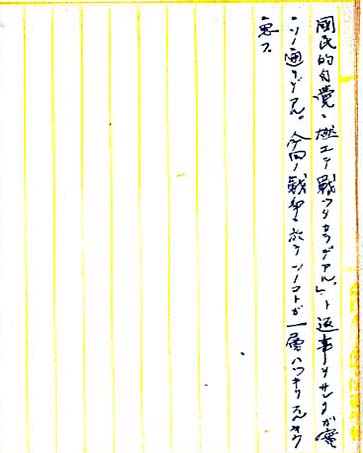 國民的自覺ニ燃エテ戰ツタカラデアル」ト返事ヲサレタガ實
ニソノ通リデアル。今回ノ戰爭ニ於テソノコトガ一層ハツキリスルヤウ
ニ思フ。